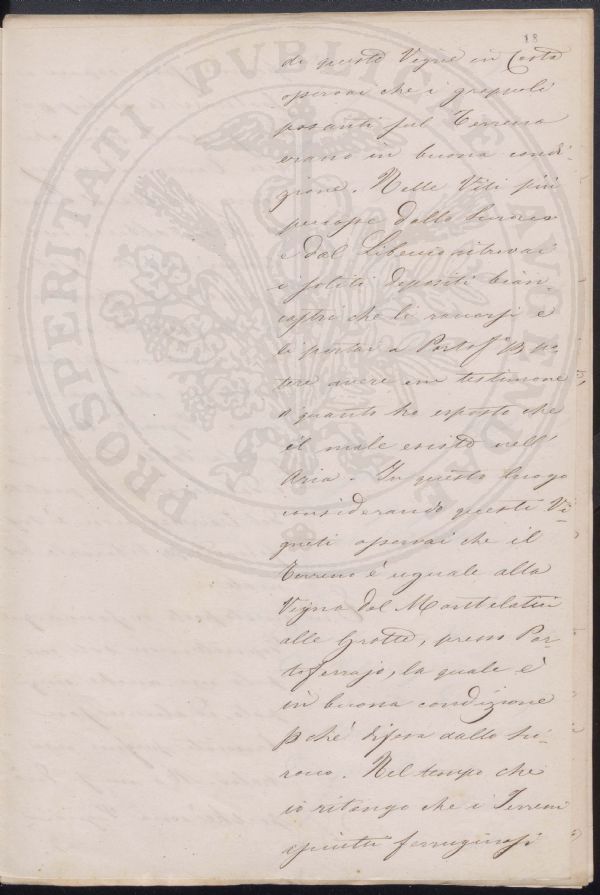 18
di queste Vigne in Costa
osservai che i grappoli
posanti sul Terreno
erano in buona condi-
zione. Nelle Viti più
percosse dallo Sirocco
e dal Libeccio ritrovai
i soliti depositi bian-
castri che li raccorsi e
li portai a Portof.º p. po-
tere avere un testimone
a quanto ho esposto che
il male esiste nell'
Aria. In questo luogo
considerando questi Vi-
gneti osservai che il
Terreno è uguale alla
Vigna del
alle Grotte, presso Por-
toferrajo, la quale è
in buona condizione
pchè difesa dallo Si-
rocco. Nel tempo che
io ritengo che i Terreni
ferruginosi
PROSPERITATI PUBLICAE AUGENDAE